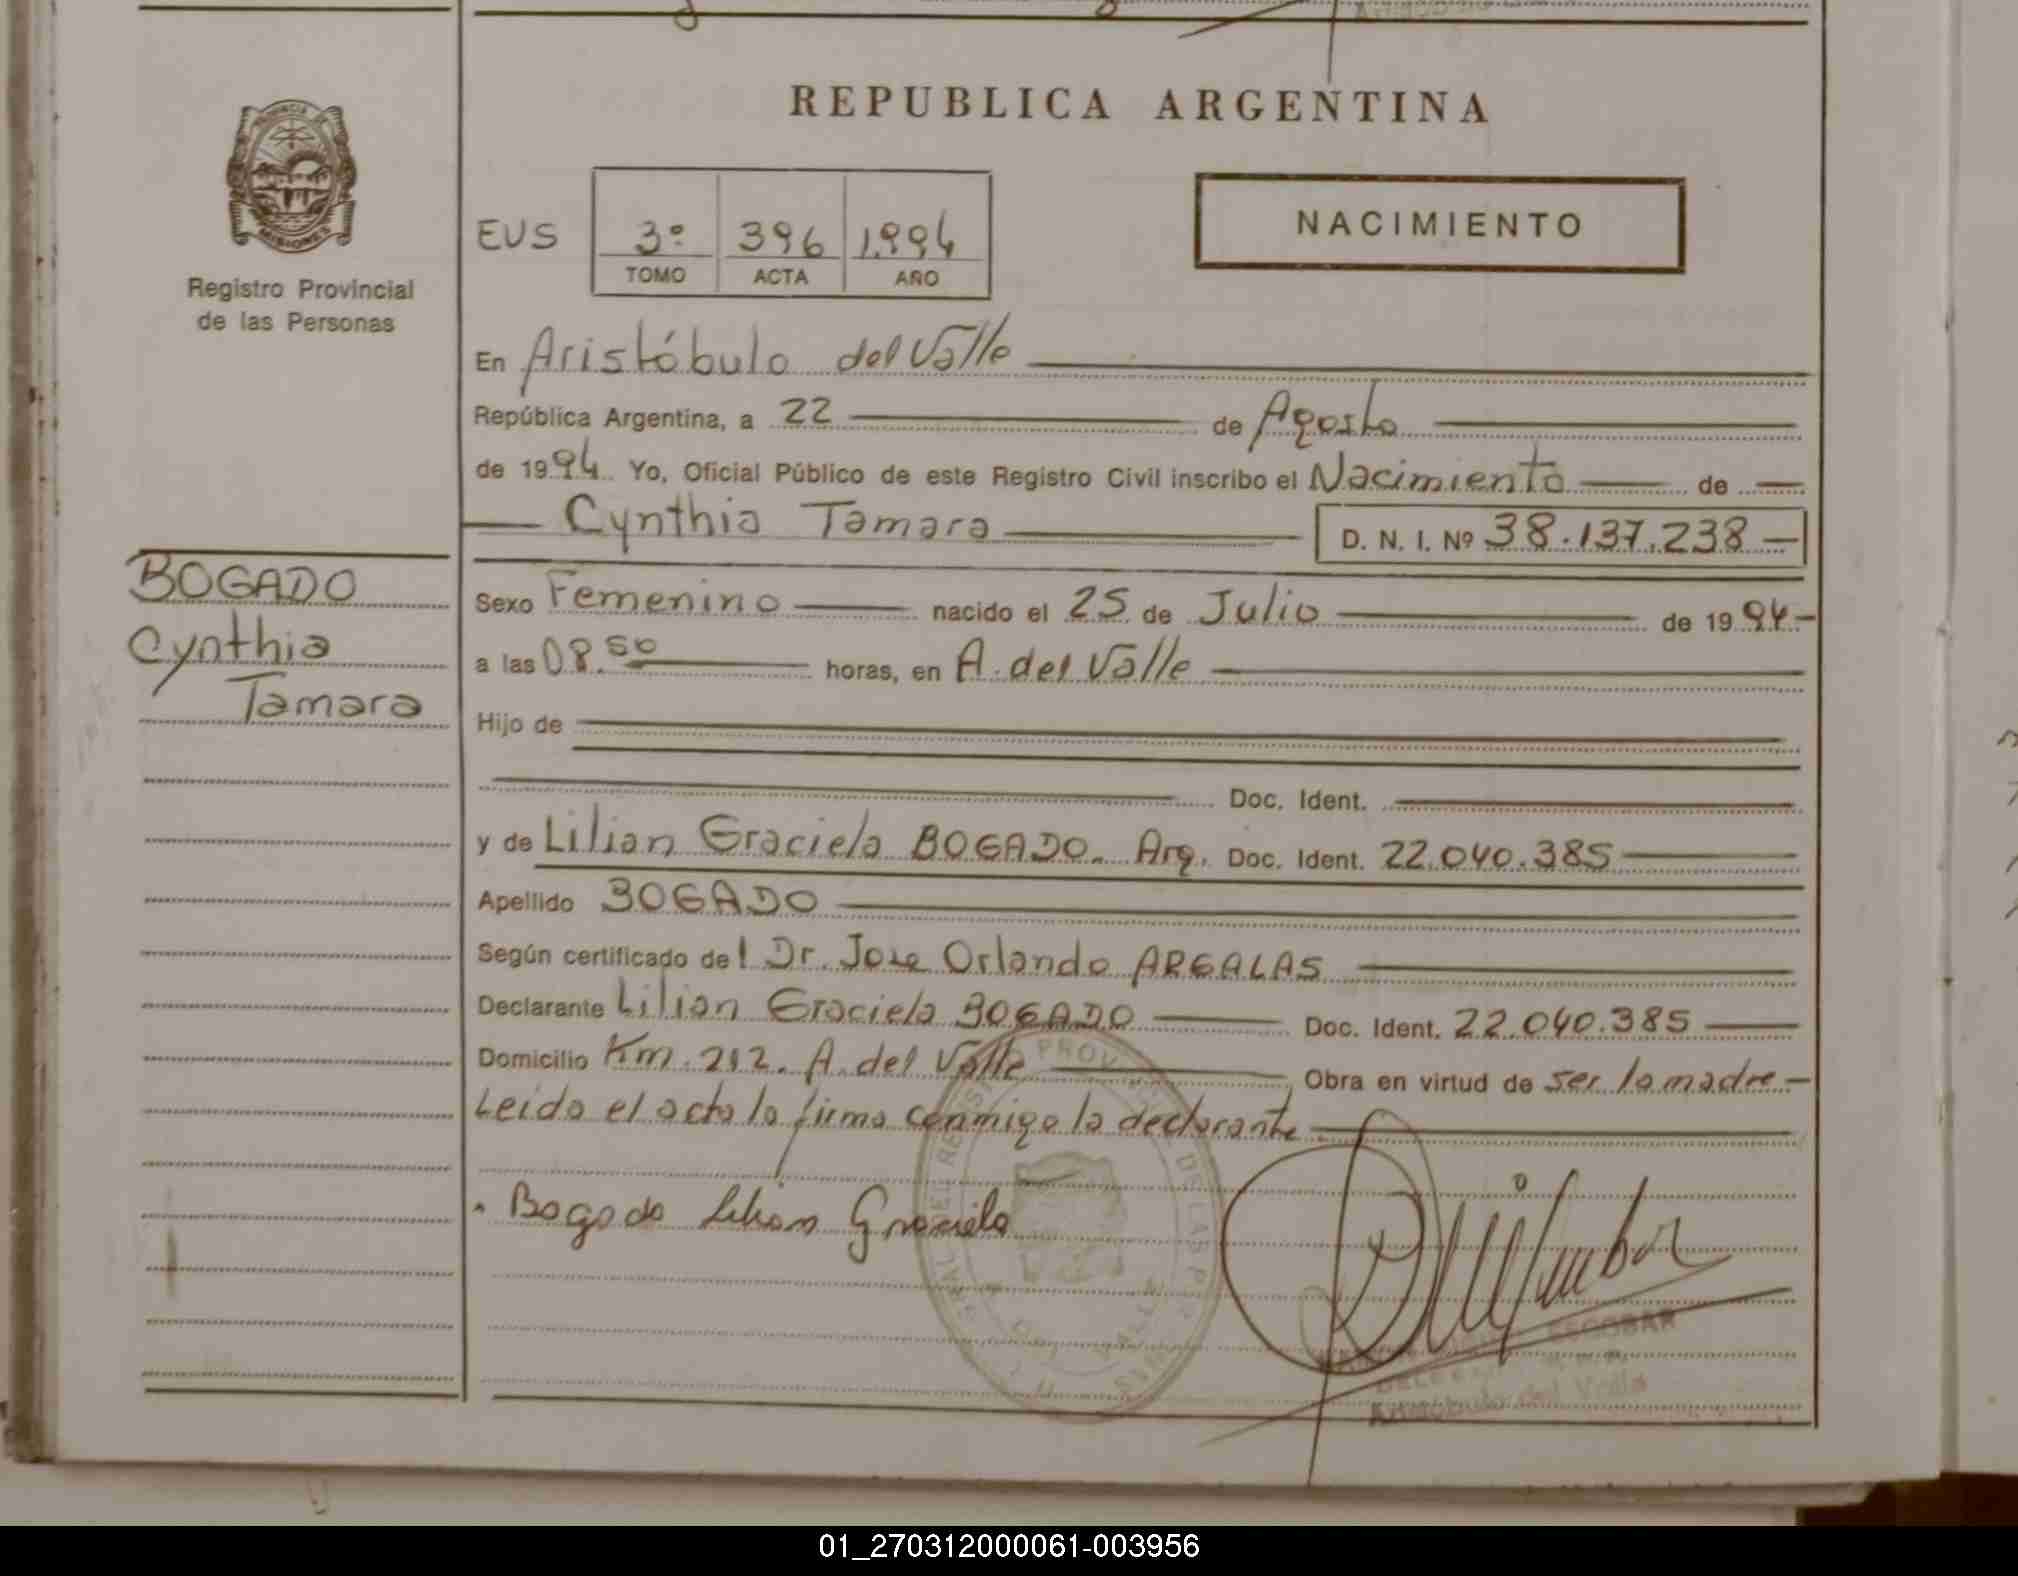 REPUBLICA ARGENTINA
PROVINCIA
MISIONES
Registro Provincial
de las Personas
EUS
3º 396 1.994
TOMO ACTA AÑO
NACIMIENTO
En Aristóbulo del Valle
República Argentina, a 22 de Agosto
de 1994 Yo, Oficial Público de este Registro Civil inscribo el Nacimiento de
Cynthia Tamara D. N. I. Nº 38.137.238
BOGADO
Cynthia
Tamara
Sexo Femenino nacido el 25 de Julio de 1994
a las 08.50 horas, en A. del Valle
Hijo de
Doc. Ident.
y de Lilian Graciela BOGADO. Arg. Doc. Ident. 22.040.385
Apellido BOGADO
Según certificado del Dr. Jose Orlando ARGALAS
Declarante Lilian Graciela BOGADO Doc. Ident. 22.040.385
Domicilio Km. 212. A. del Valle Obra en virtud de ser la madre
Leida el acta la firma conmigo la declarante
Bogado Lilian Graciela
ESCOBAR
Aristóbulo del Valle
01_270312000061-003956